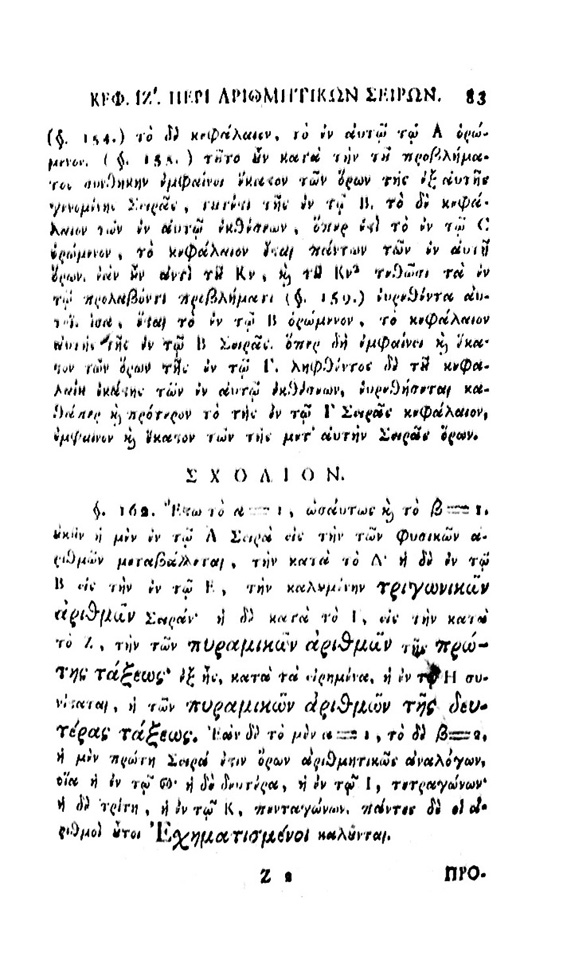 ΚΕΦ. ΙΖ'. ΠΕΡΙ ΑΡΙΘΜΗΤΙΚΩΝ ΣΕΙΡΩΝ. 83
(§. 154.) τὸ δὲ κεφάλαιον, τὸ ἐν αὐτῷ τῷ Α ὁρώ-
μενον. (§. 155.) τῦτο ὖν κατὰ τὴν τῦ προβλήμα-
τος συνθήκην ἐμφαίνει ἕκαϛον τῶν ὅρων τῆς ἐξ αὐτῆς
γενομένης Σειρᾶς, τῆς ἐν τῷ Β. τὸ δὲ κεφά-
λαιον τῶν ἐν αὐτῷ ἐκθέσεων, ὅπερ ἐϛὶ τὸ ἐν τῷ C
ὁρώμενον, τὸ κεφάλαιον ἔϛαι πάντων τῶν ἐν αὐτῇ
ὅρων. ἐὰν ὖν ἀντὶ τῦ Κν, ϗ τῦ Κν² τεθῶσι τὰ ἐν
τῷ προλαβόντι προβλήματι (§. 159.) εὑρεθέντα αὐ-
τοῖς ἴσα, ἔϛαι τὸ ἐν τῷ Β ὁρώμενον, τὸ κεφάλαιον
αὐτῆς τῆς ἐν τῷ Β Σειρᾶς. ὅπερ δὴ ἐμφαίνει ϗ ἕκα-
ϛον τῶν ὅρων τῆς ἐν τῷ Γ. ληφθέντος δὲ τῦ κεφα-
λαίυ ἑκάϛης τῶν ἐν αὐτῷ ἐκθέσεων, εὑρεθήσεται κα-
θάπερ ϗ πρότερον τὸ τῆς ἐν τῷ Γ Σειρᾶς κεφάλαιον,
ἐμφαῖνον ϗ ἕκαϛον τῶν τῆς μετ' αὐτὴν Σειρᾶς ὅρων.
ΣΧΟΛΙΟΝ.
§. 162. Ἔϛω τὸ α=1, ὡσαύτως ϗ τὸ β=1.
ὐκῦν ἡ μὲν ἐν τῷ Α Σειρὰ εἰς τὴν τῶν Φυσικῶν ἀ-
ριθμῶν μεταβάλλεται, τὴν κατὰ τὸ Δ· ἡ δὲ ἐν τῷ
Β εἰς τὴν ἐν τῷ Ε, τὴν καλυμένην τριγωνικῶν
ἀριθμῶν Σειράν· ἡ δὲ κατὰ τὸ Γ, εἰς τὴν κατὰ
τὸ Ζ, τὴν τῶν πυραμικῶν ἀριθμῶν τῆς πρώ-
της τάξεως· ἐξ ἧς, κατὰ τὰ εἰρημένα, ἡ ἐν τῷ Η συ-
νίϛαται, ἡ τῶν πυραμικῶν ἀριθμῶν τῆς δευ-
τέρας τάξεως. Ἐὰν δὲ τὸ μὲν α=1, τὸ δὲ β=2,
ἡ μὲν πρώτη Σειρά ἐϛιν ὅρων ἀριθμητικῶς ἀναλόγων,
οἵα ἡ ἐν τῷ Θ· ἡ δὲ δευτέρα, ἡ ἐν τῷ Ι, τετραγώνων·
ἡ δὲ τρίτη, ἡ ἐν τῷ Κ, πενταγώνων. πάντες δὲ οἱ ἀ-
ριθμοὶ ὗτοι Ἐχηματισμένοι καλῦνται.
Ζ 2 ΠΡΟ-